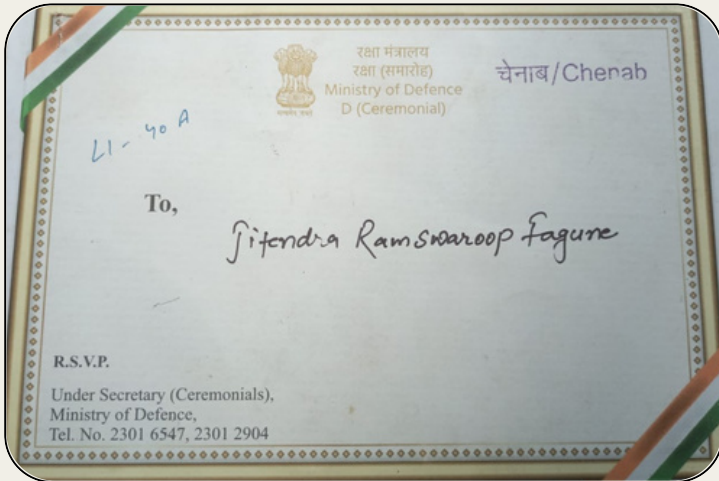 रक्षा मंत्रालय
रक्षा (समारोह)
Ministry of Defence
D (Ceremonial)
चेनाब/Chenab
L1-40A
To,
Jitendra Ramswaroop Fagune
R.S.V.P.
Under Secretary (Ceremonials),
Ministry of Defence,
Tel. No. 2301 6547, 2301 2904